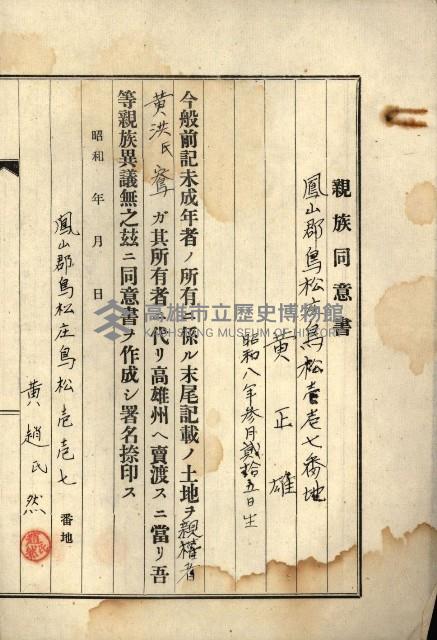 親族同意書
鳳山郡鳥松庄鳥松壱壱七番地
黄正雄
昭和八年参月貳拾五日生
今般前記未成年者ノ所有ニ係ル末尾記載ノ土地ヲ親権者
黄洪氏鴦ガ其所有者ニ代リ高雄州ヘ賣渡スニ當リ吾
等親族異議無之玆ニ同意書ヲ作成シ署名捺印ス
昭和 年 月 日
鳳山郡鳥松庄鳥松壱壱七番地
黄趙氏然
高雄市立歷史博物館
KAOHSIUNG MUSEUM OF HISTORY